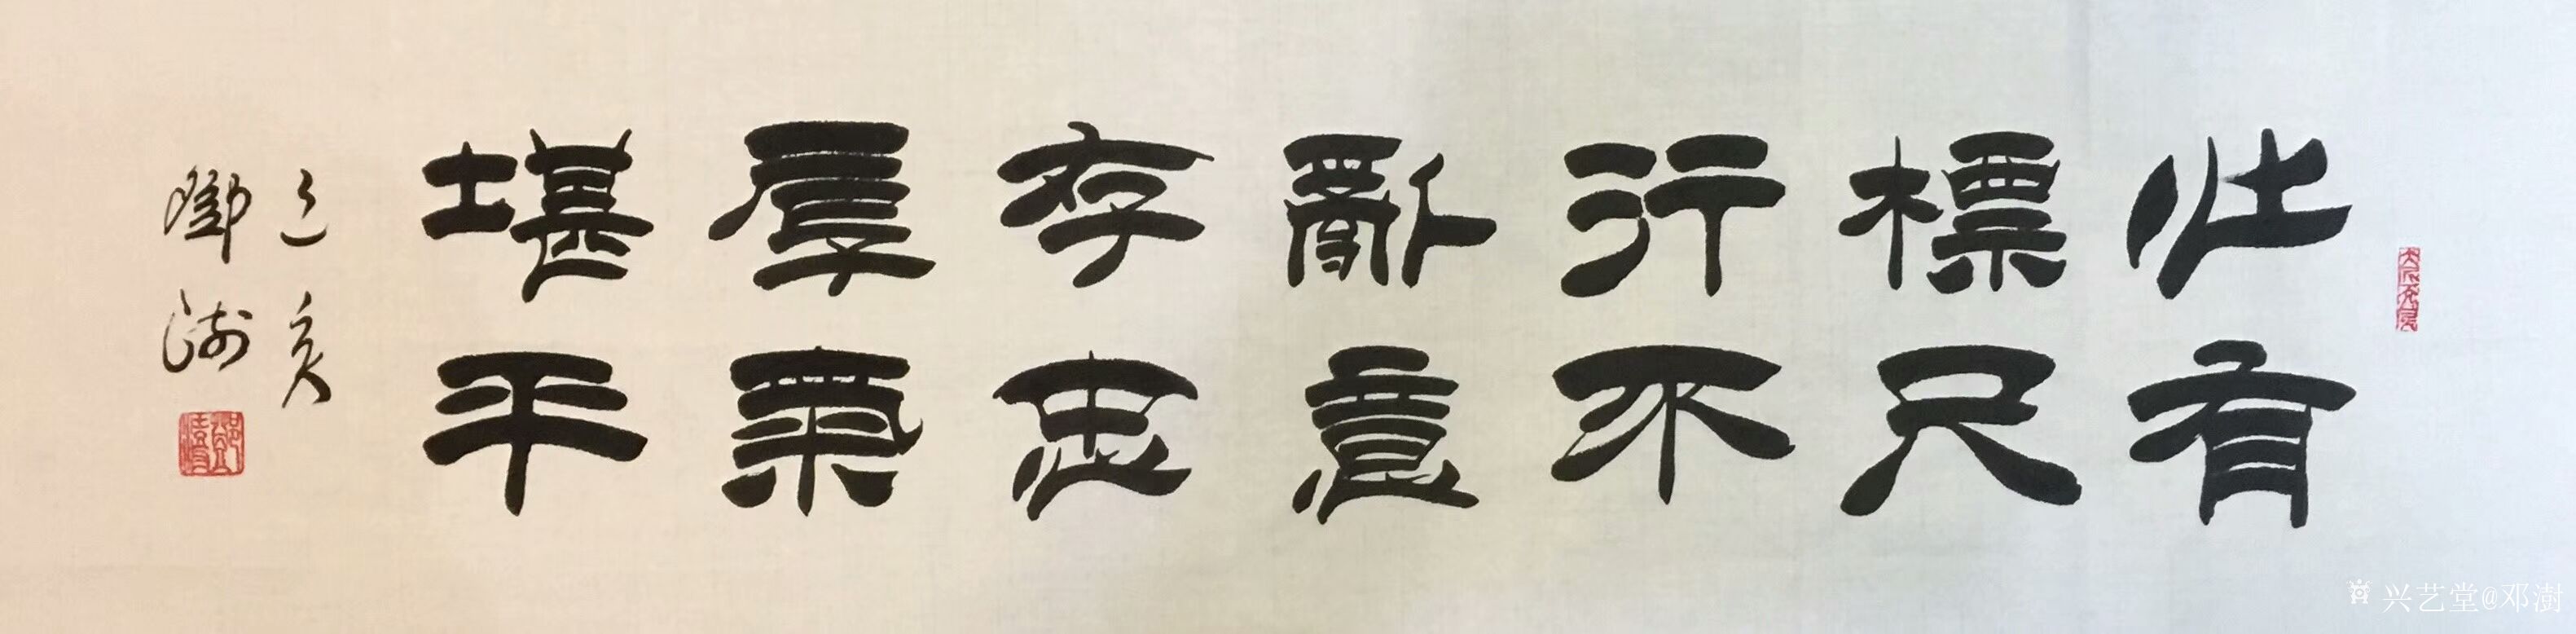 仕有
標尺
行不
亂意
存忠
厚氣
堪平
己亥
鄧澍
兴艺堂@邓澍